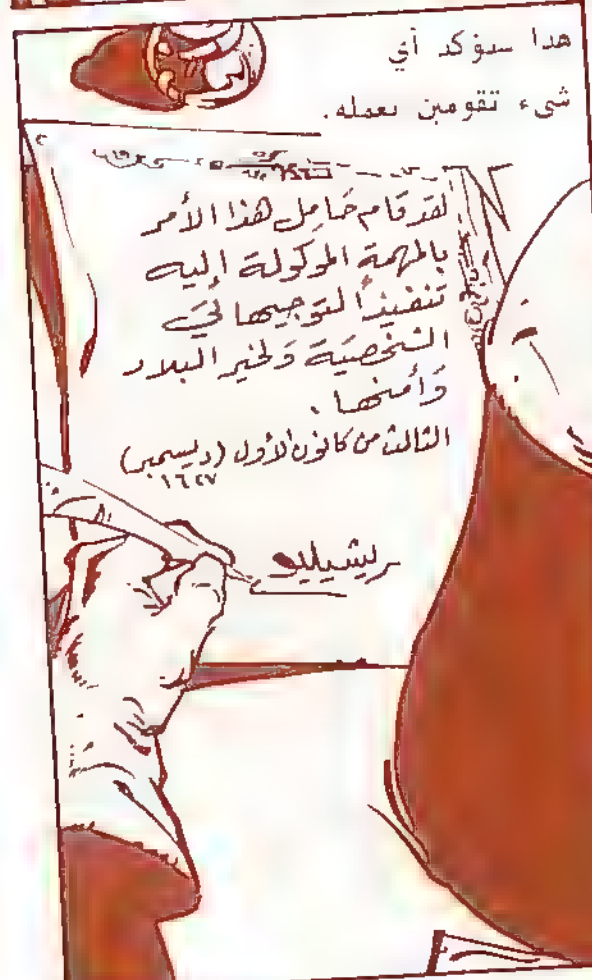 هدا سيؤكد أي
شيء تقومين بعمله.
لقد قام حَامِل هذا الأمر
بالمهمة الموكولة إليه
تنفيذاً لتوجيهاتي
الشخصيّة وَلخير البلاد
وَأمنها.
الثالث من كانون الأول (ديسمبر)
١٦٢٧
ريشيليو